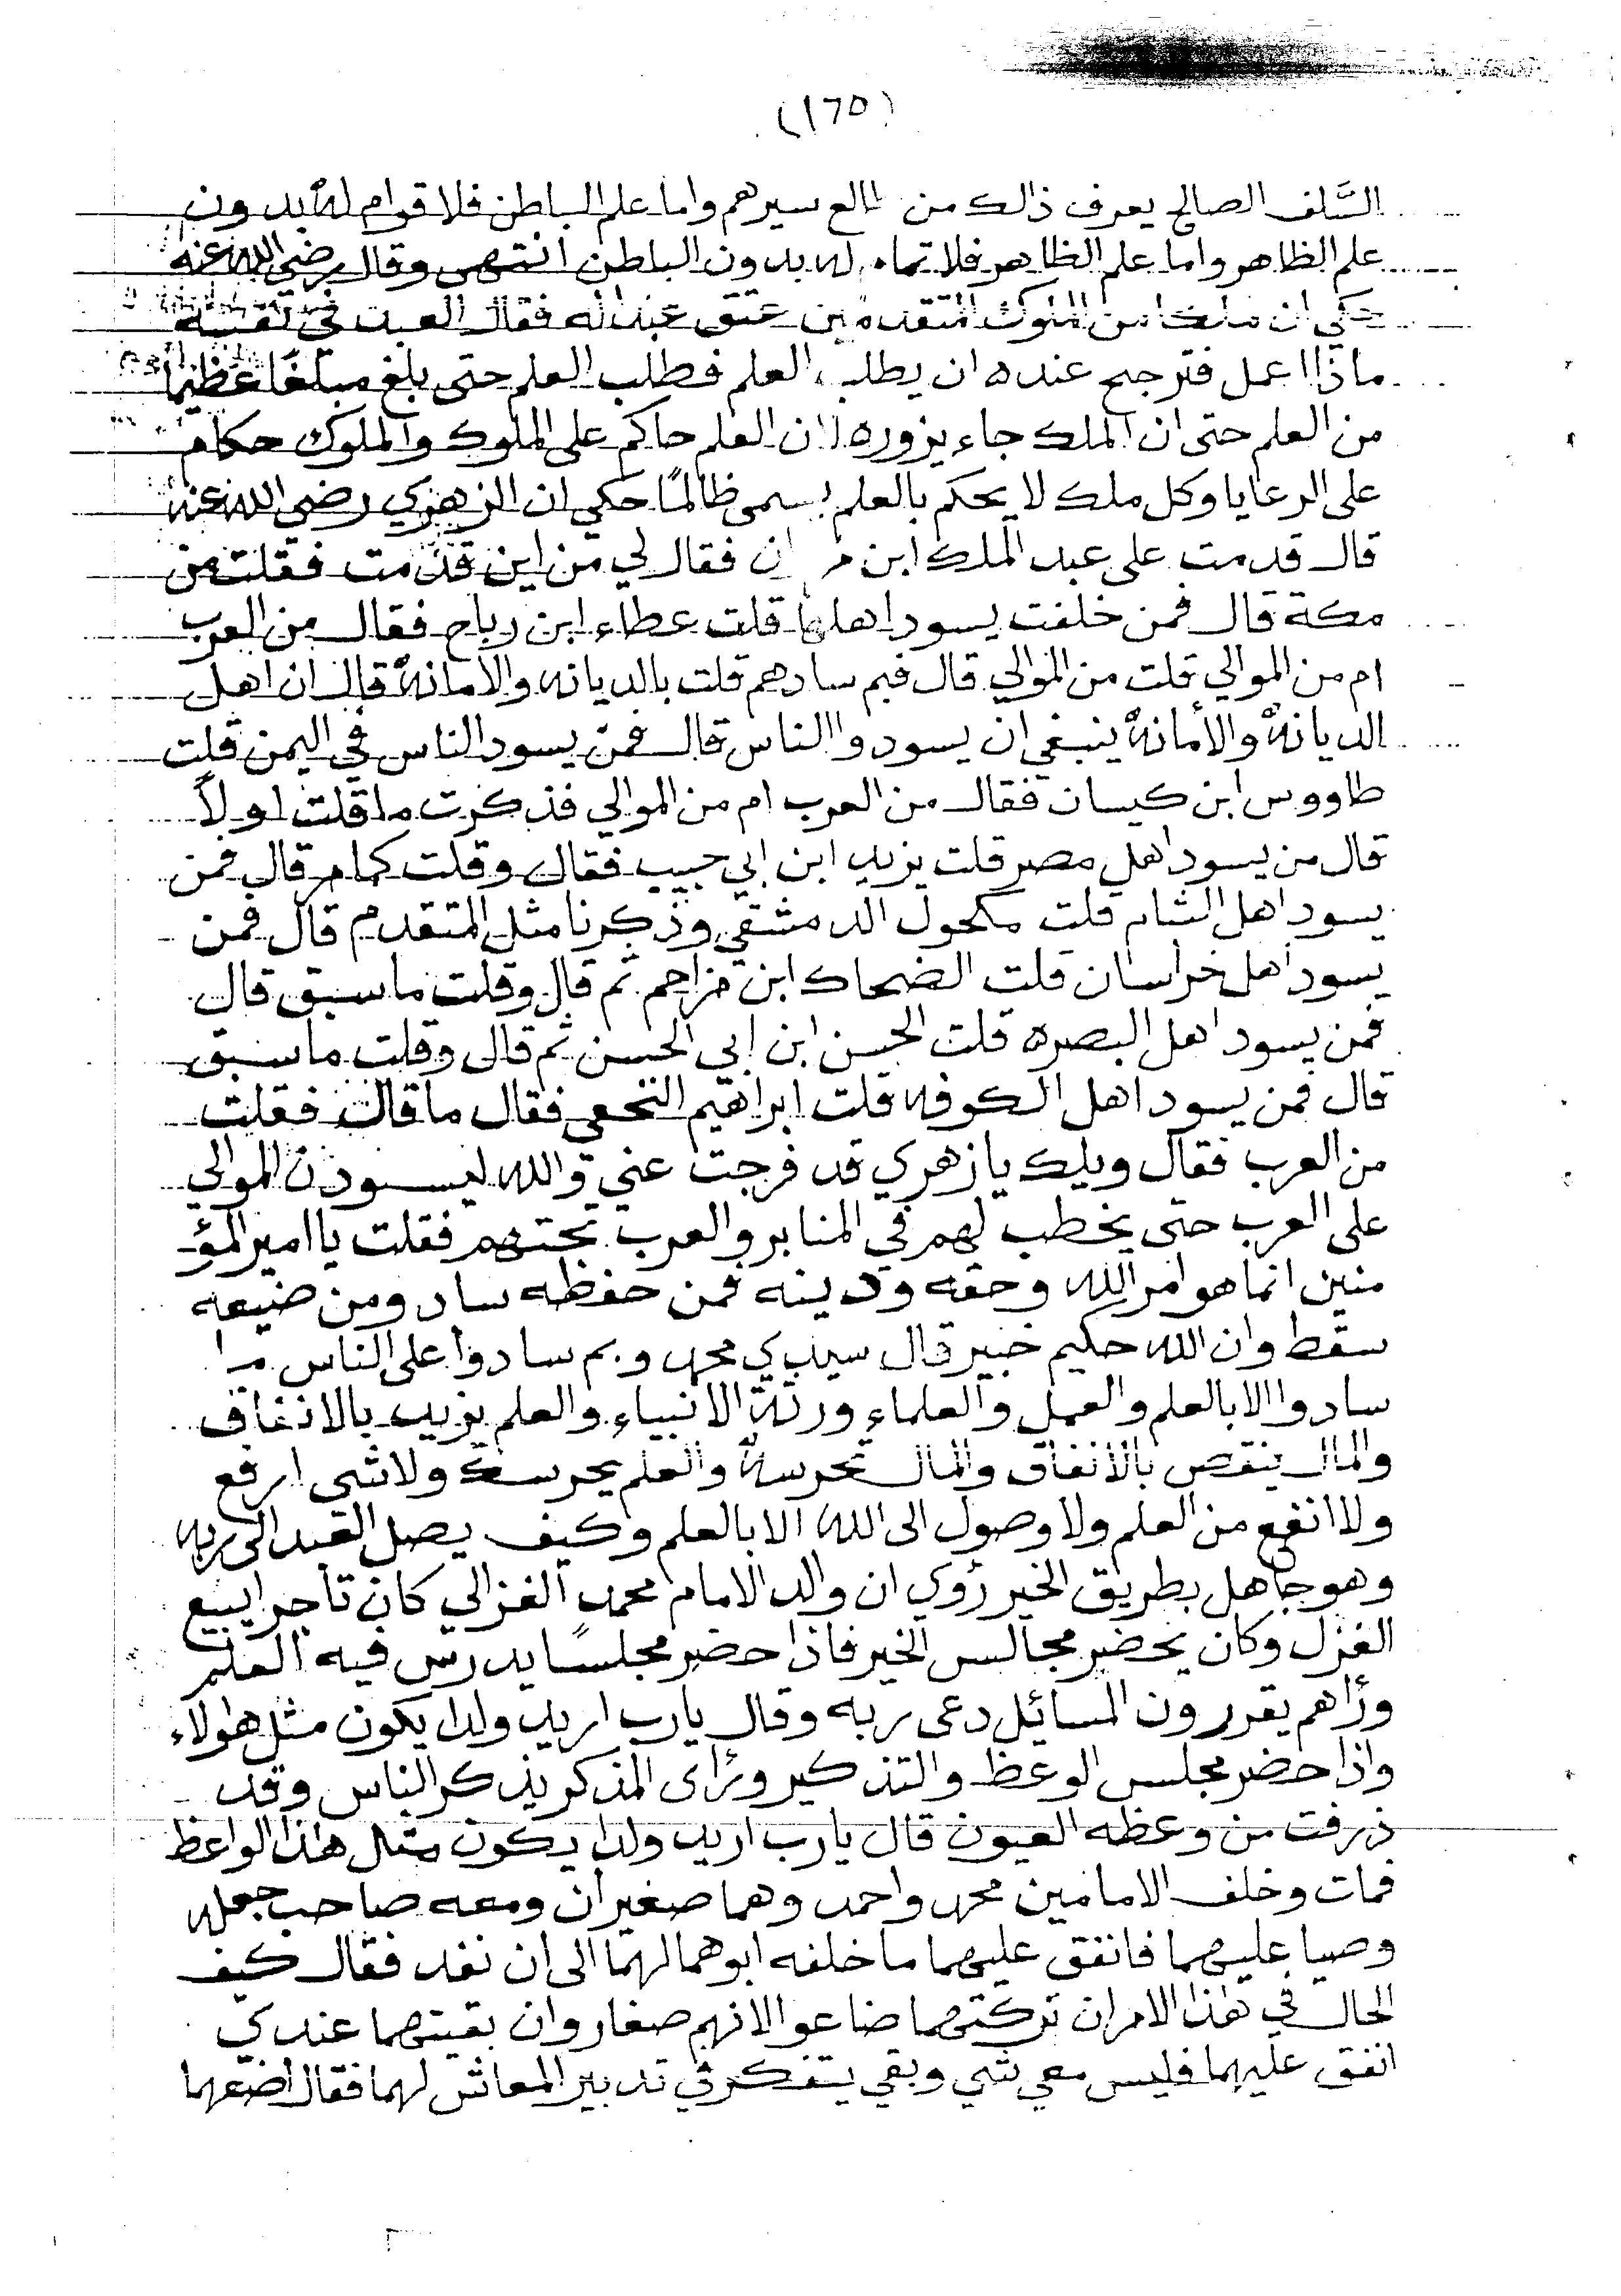 (١٦٥)
السَّلف الصالح يعرف ذالك من طالع سيرهم واما علم الباطن فلا قوام له بدون
علم الظاهر واما علم الظاهر فلا تمام له بدون الباطن انتهى وقال رضي الله عنه
حكي ان ملكا من الملوك المتقدمين عتق عبدا له فقال العبد في نفسه
ماذا اعمل فترجح عنده ان يطلب العلم فطلب العلم حتى بلغ مبلغًا عظيما
من العلم حتى ان الملك جاء يزوره ان العلم حاكم على الملوك والملوك حكام
على الرعايا وكل ملك لا يحكم بالعلم يسمى ظالمًا حكي ان الزهري رضي الله عنه
قال قدمت على عبد الملك ابن مروان فقال لي من اين قدمت فقلت من
مكة قال فمن خلفت يسود اهلها قلت عطاء ابن رباح فقال من العرب
ام من الموالي قلت من الموالي قال فبم سادهم قلت بالديانه والأمانة قال ان اهل
الديانة والأمانة ينبغي ان يسودوا الناس قال فمن يسود الناس في اليمن قلت
طاووس ابن كيسان فقال من العرب ام من الموالي فذكرت ما قلت اولاً
قال من يسود اهل مصر قلت يزيد ابن ابي حبيب فقال وقلت كما مر قال فمن
يسود اهل الشام قلت مكحول الدمشقي وذكرنا مثل المتقدم قال فمن
يسود اهل خراسان قلت الضحاك ابن مزاحم ثم قال وقلت ما سبق قال
فمن يسود اهل البصره قلت الحسن ابن ابي الحسن ثم قال وقلت ما سبق
قال فمن يسود اهل الكوفه قلت ابراهيم النخعي فقال ما قال فقلت
من العرب فقال ويلك يا زهري قد فرجت عني والله ليسودن الموالي
على العرب حتى يخطب لهم في المنابر والعرب تحتهم فقلت يا امير المؤ
منين انما هو امر الله وحقه ودينه فمن حفظه ساد ومن ضيعه
سقط وان الله حكيم خبير قال سيدي محمد وبم سادوا على الناس ما
سادوا الا بالعلم والعمل والعلماء ورثة الانبياء والعلم يزيد بالانفاق
والمال ينقص بالانفاق والمال تحرسه والعلم يحرسك ولا شي ارفع
ولا انفع من العلم ولا وصول الى الله الا بالعلم وكيف يصل العبد الى ربه
وهو جاهل بطريق الخير رؤي ان والد الامام محمد الغزالي كان تاجرا يبيع
الغزل وكان يحضر مجالس الخير فاذا حضر مجلسًا يدرس فيه العلم
ورأهم يقررون المسائل دعى ربه وقال يا رب اريد ولدا يكون مثل هؤلاء
واذا حضر مجلس الوعظ والتذكير ورأى المذكر يذكر الناس وقد
ذرفت من وعظه العيون قال يا رب اريد ولدا يكون مثل هذا الواعظ
فمات وخلف الامامين محمد واحمد وهما صغيران ومعه صاحب جعله
وصيا عليهما فانفق عليهما ما خلفه ابوهما لهما الى ان نفد فقال كيف
الحال في هذا الامر ان تركتهما ضاعوا لانهم صغار وان بقيتهما عندي
انفق عليهما فليس معي شي وبقي يتفكر في تدبير المعاش لهما فقال اضعهما